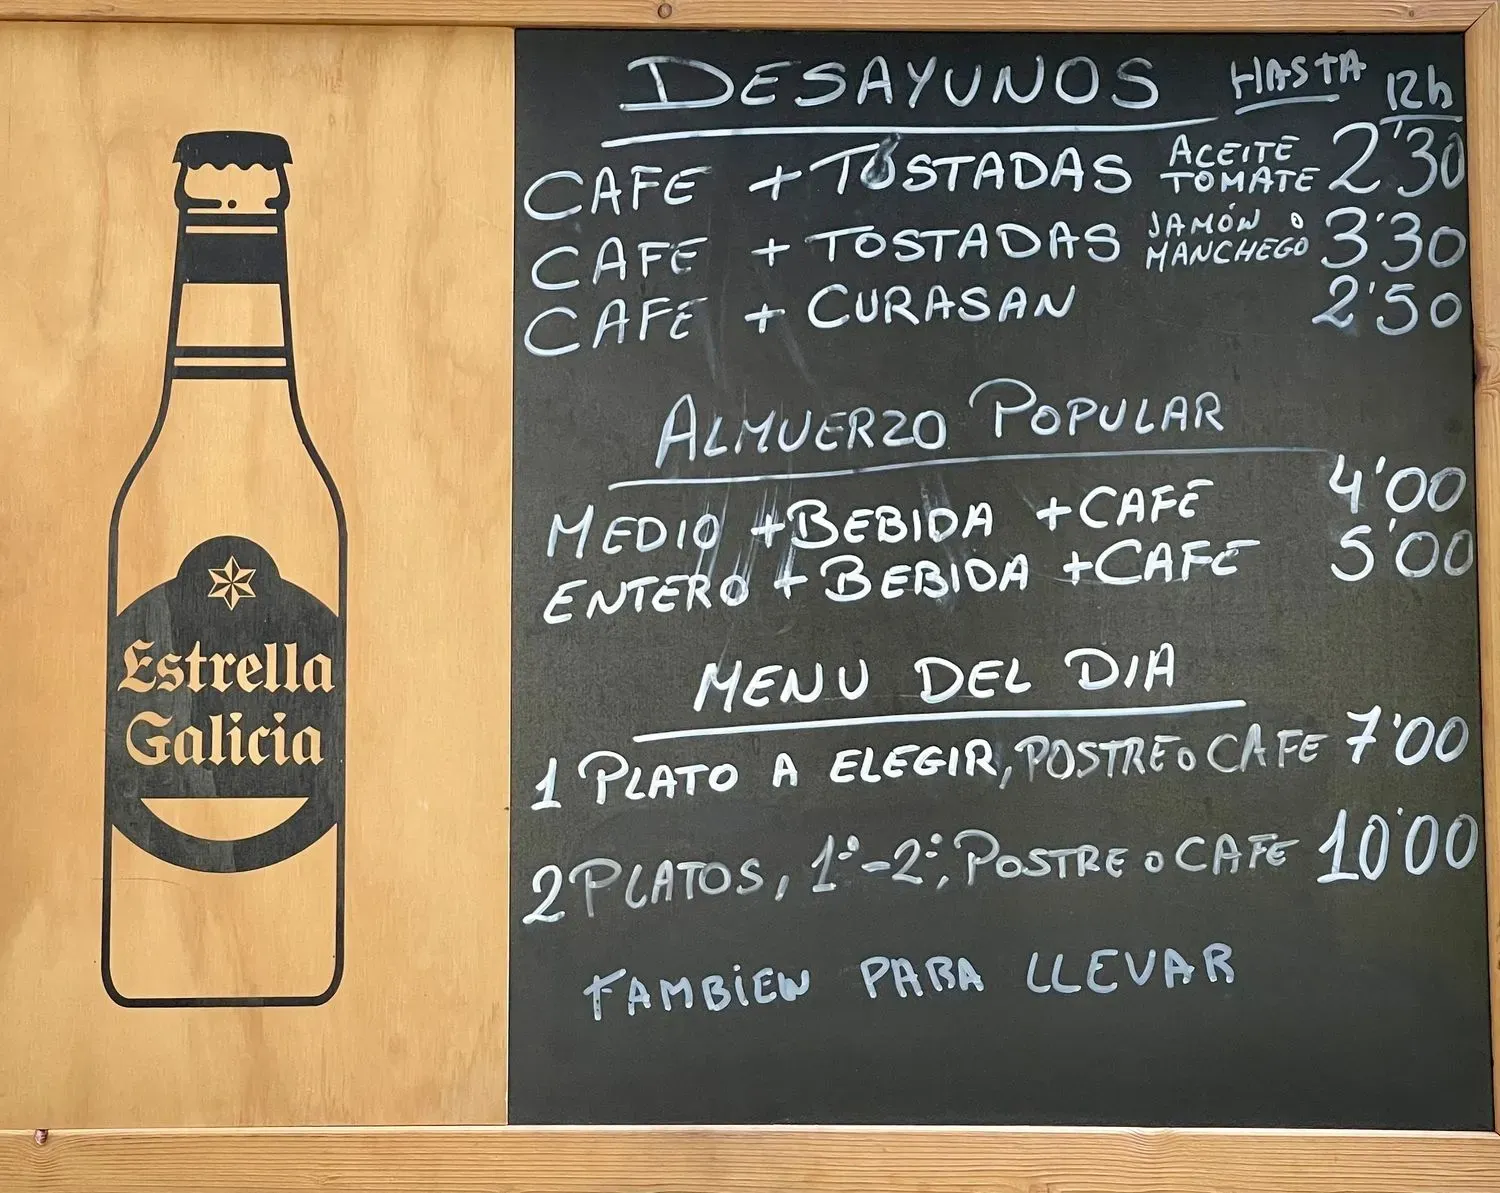 Estrella
Galicia
DESAYUNOS HASTA 12h
CAFE + TOSTADAS ACEITE TOMATE 2'30
CAFE + TOSTADAS JAMÓN O MANCHEGO 3'30
CAFE + CURASAN 2'50
ALMUERZO POPULAR
MEDIO + BEBIDA + CAFE 4'00
ENTERO + BEBIDA + CAFE 5'00
MENU DEL DIA
1 PLATO A ELEGIR, POSTRE O CAFE 7'00
2 PLATOS, 1º-2º, POSTRE O CAFE 10'00
TAMBIEN PARA LLEVAR